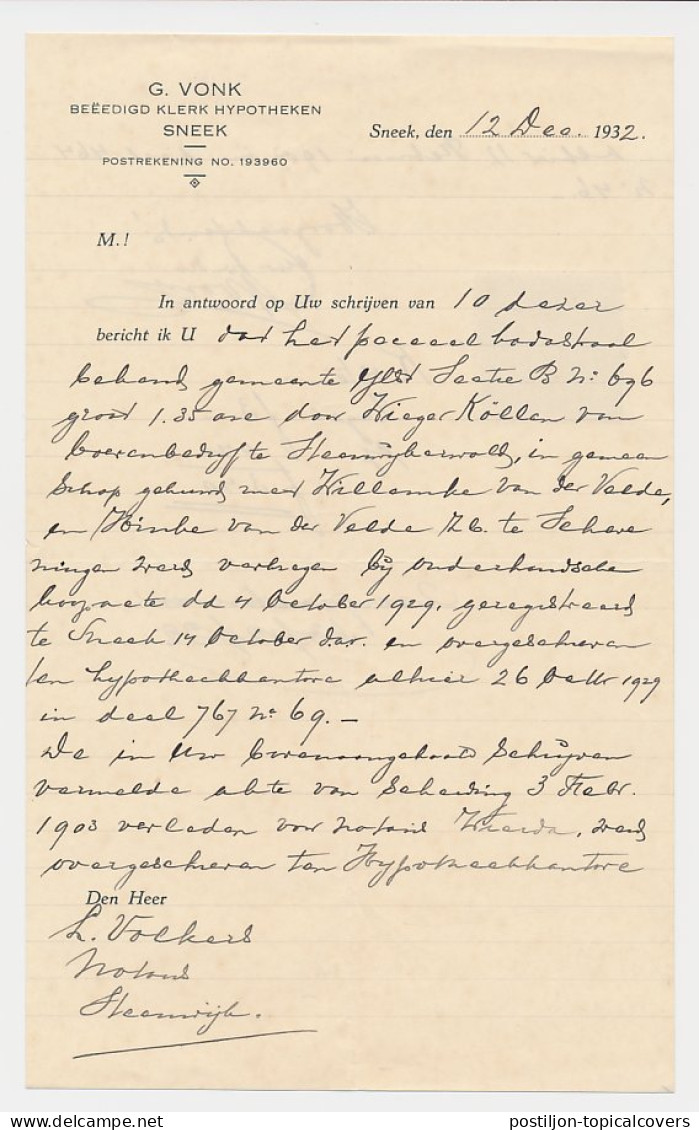 G. VONK
BEËEDIGD KLERK HYPOTHEKEN
SNEEK
POSTREKENING NO. 193960
Sneek, den 12 Dec. 1932.
M.!
In antwoord op Uw schrijven van 10 dezer
bericht ik U dat het perceel kadastraal
bekend gemeente IJlst Sectie B No. 696
groot 1.35 are door Wieger Köllen van
boerenbedrijf te Steenwijkerwold, in gemeen
schap gehuwd met Willemke van der Velde,
en Hinke van der Velde Zb. te Scheve
ningen werd verkregen bij onderhandsche
koopacte dd 4 October 1929. geregistreerd
te Sneek 14 October d.a.v. en overgeschreven
ten hypotheekkantore alhier 26 Octbr 1929
in deel 767 No. 69. –
De in Uw bovenaangehaald schrijven
vermelde akte van Scheiding 3 Febr.
1903 verleden voor notaris Wierda, werd
overgeschreven ten Hypotheekkantore
Den Heer
L. Volkers
Notaris
Steenwijk.
postiljon-topicalcovers